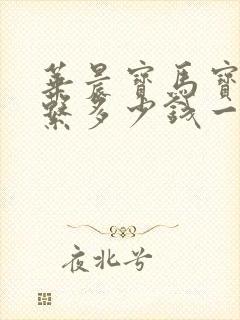 葉晨寶馬寶
繫多少錢一
夜北兮